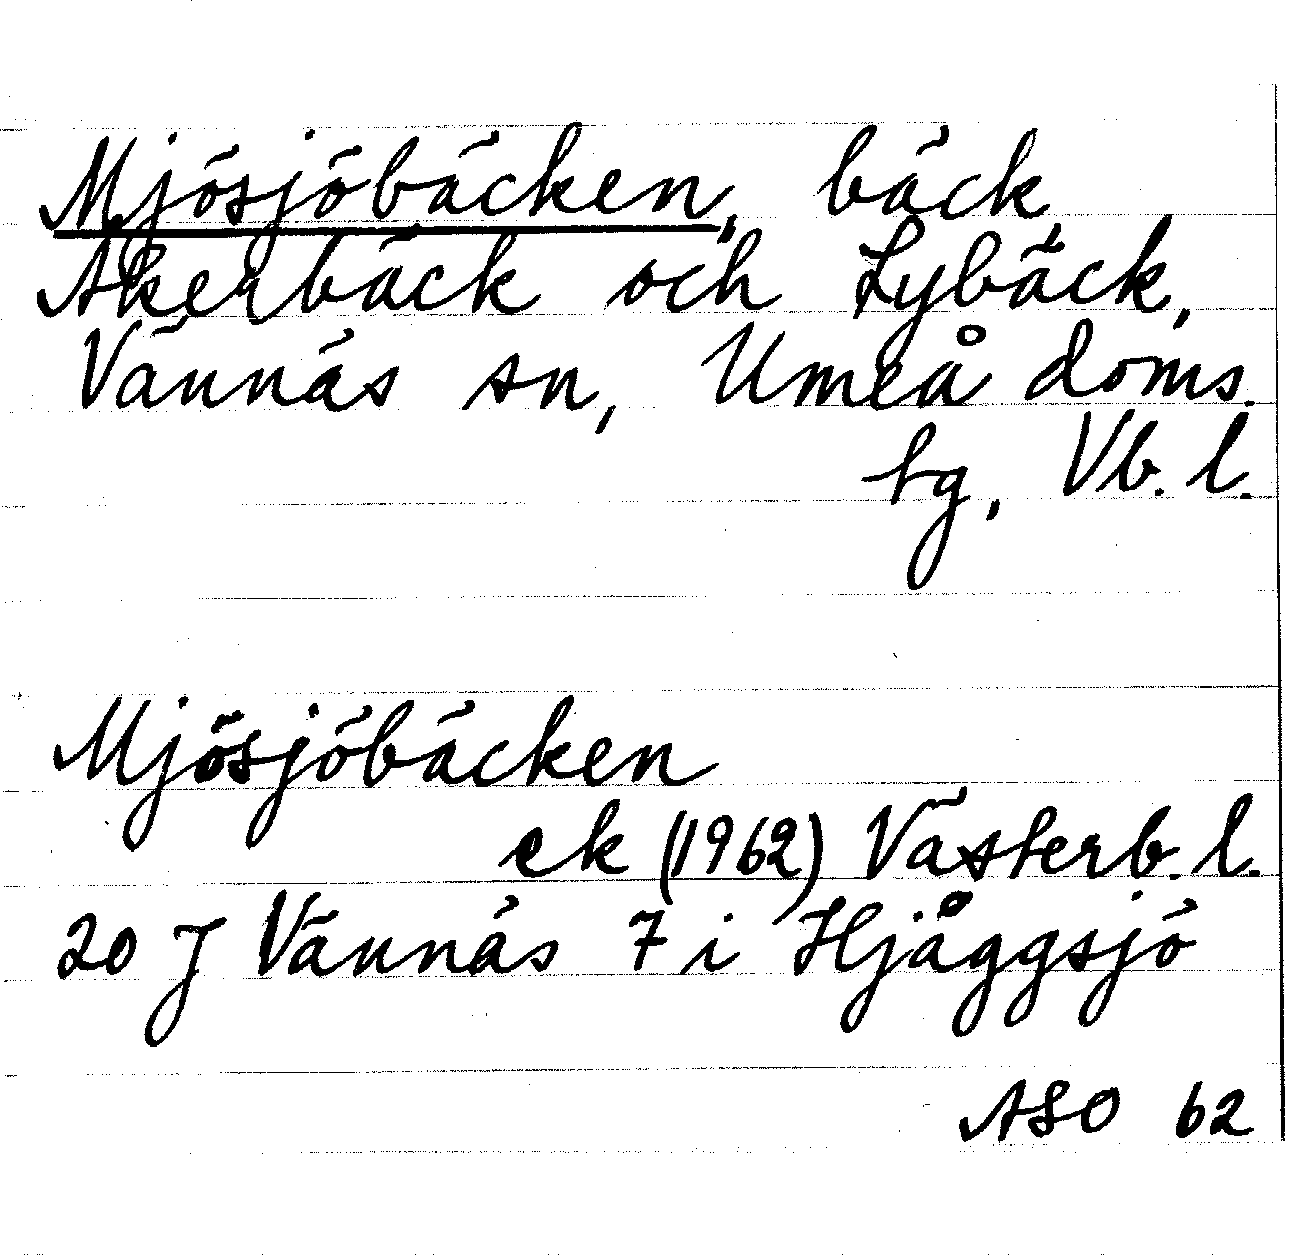 Mjösjöbäcken, bäck
Åkerbäck och Lybäck,
Vännäs sn, Umeå doms.
tg, Vb. l.
Mjösjöbäcken
ek (1962) Västerb. l.
20 J Vännäs 7 i Hjåggsjö
ASO 62